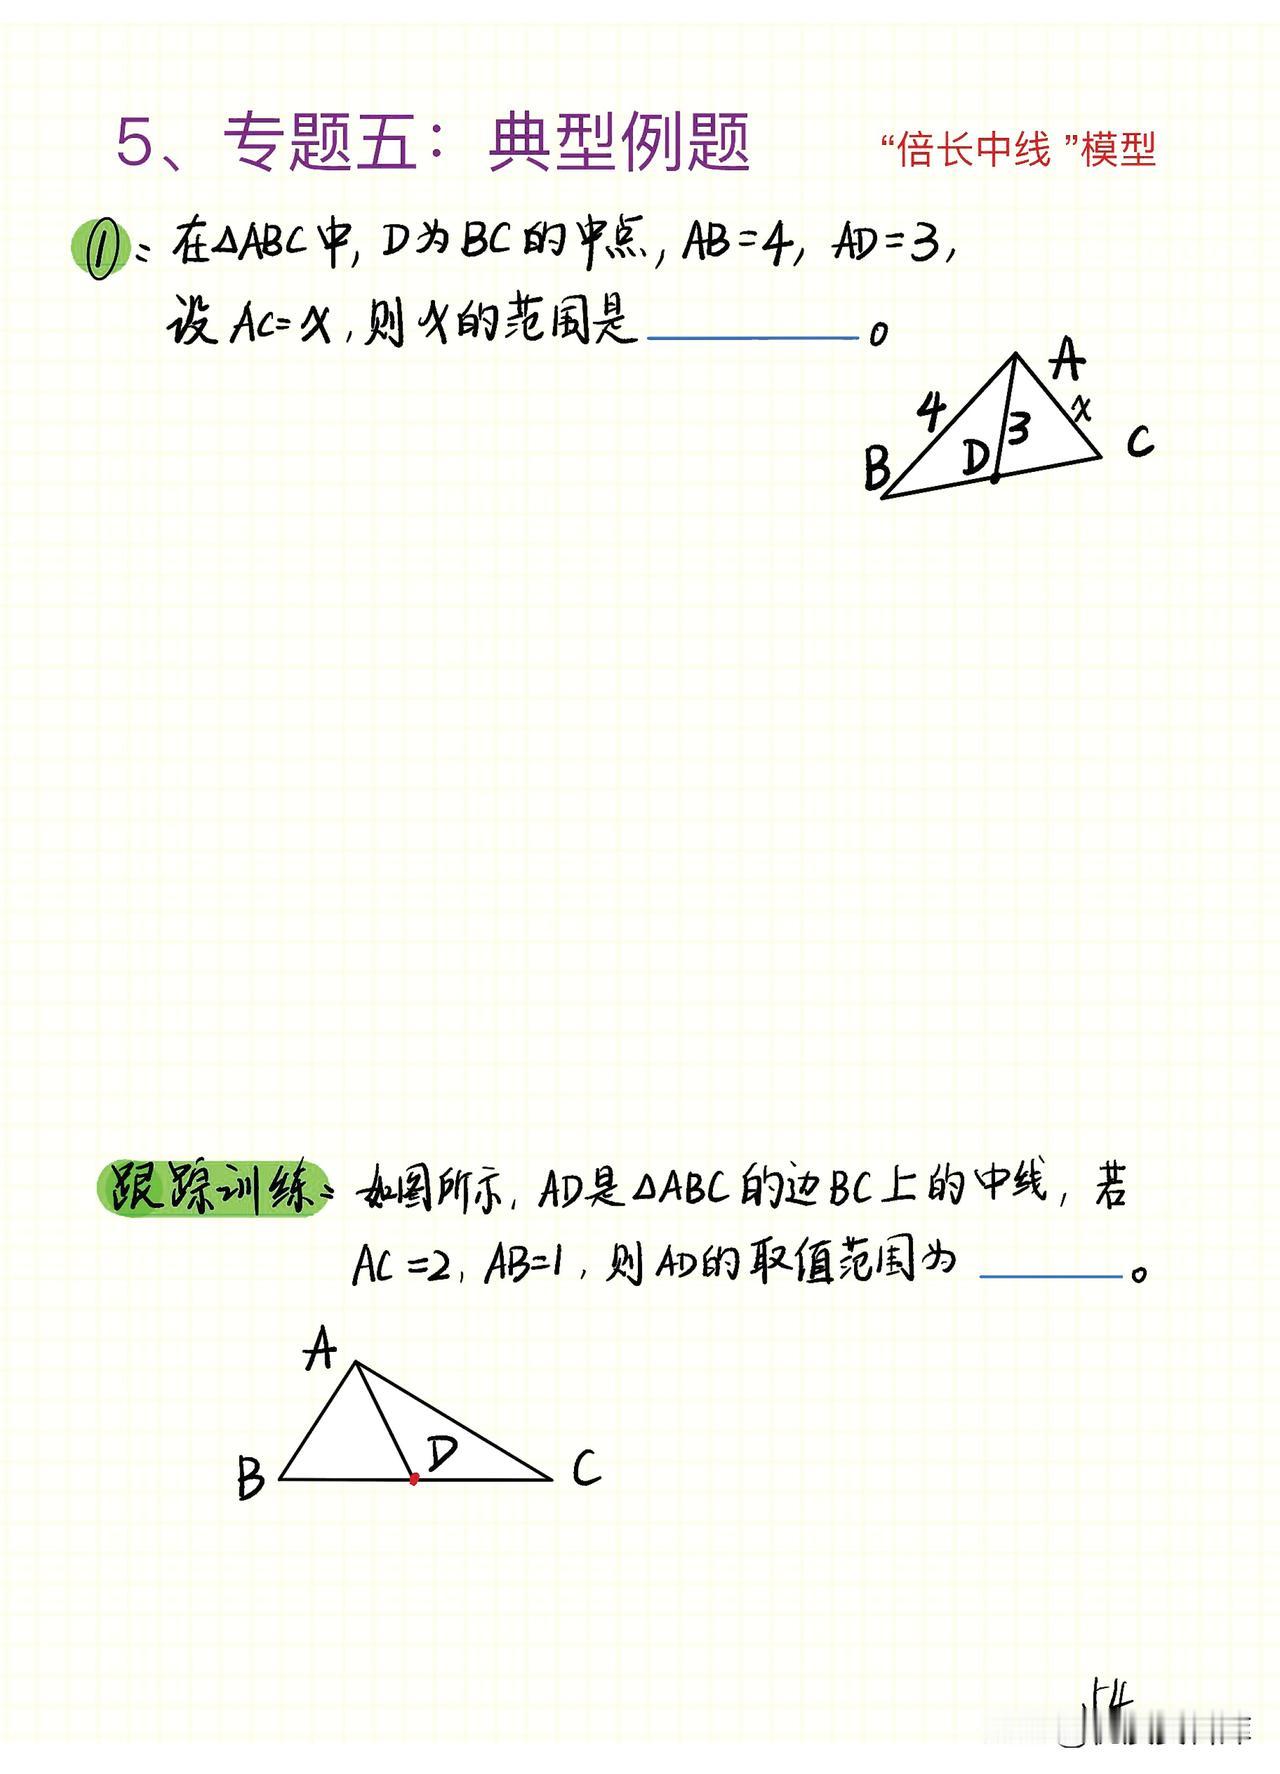 5、专题五：典型例题
“倍长中线 ”模型
①: 在△ABC中, D为BC的中点, AB=4, AD=3,
设AC=x, 则x的范围是 ________ 。
A
4
3
x
B
D
C
跟踪训练: 如图所示, AD是△ABC的边BC上的中线, 若
AC=2, AB=1, 则AD的取值范围为 ______ 。
A
D
B
C